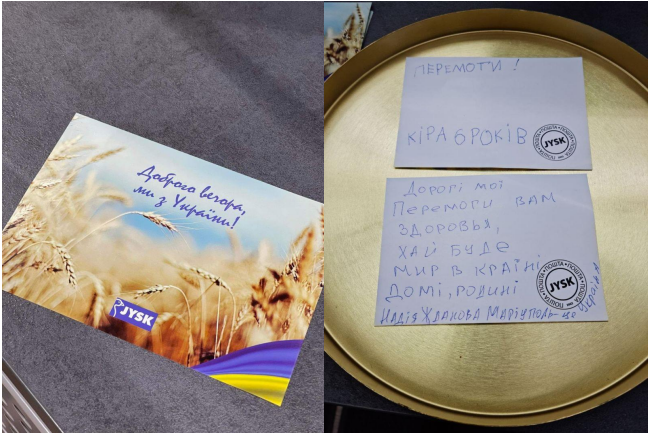 Доброго вечора,
ми з України!
JYSK
ПЕРЕМОГИ!
КІРА 6 РОКІВ
ПОШТА • ПОШТА • ПОШТА
JYSK
Дорогі мої
Перемоги вам
здоровья,
хай буде
мир в країні
домі, родині
ПОШТА • ПОШТА • ПОШТА
JYSK
Надія Жданова Маріуполь це Україна